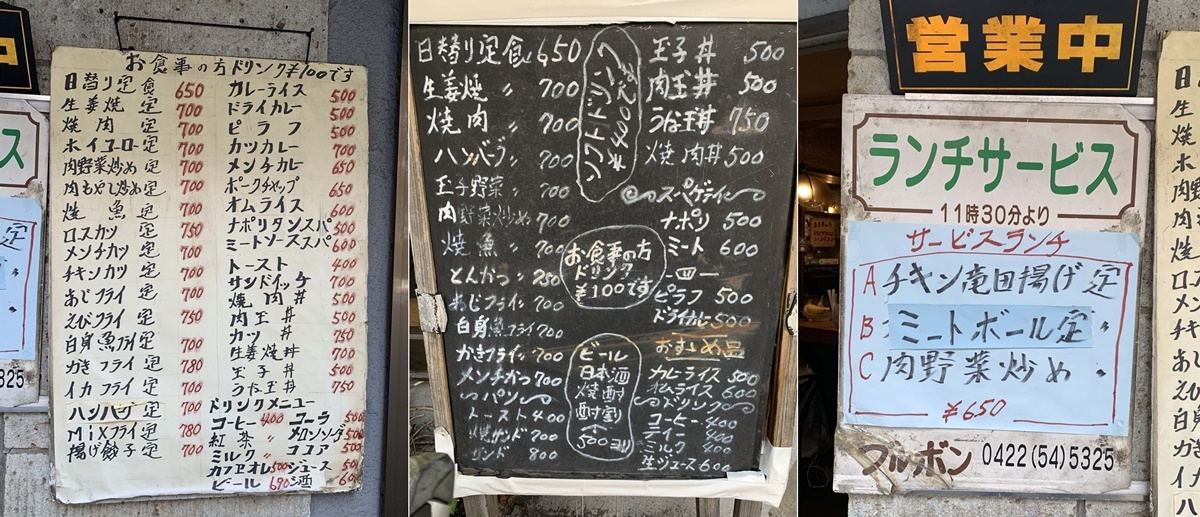 お食事の方ドリンク¥100です
日替り定食 650
生姜焼定 700
焼肉定 700
ホイコーロー定 700
肉野菜炒め定 700
肉もやし炒め定 700
焼魚定 700
ロスカツ定 750
メンチカツ定 700
チキンカツ定 700
あじフライ定 700
えびフライ定 750
白身魚フライ定 700
かきフライ定 780
イカフライ定 700
ハンバーグ定 700
MIXフライ定 780
揚げ餃子定 700
カレーライス 500
ドライカレー 500
ピラフ 500
カツカレー 700
メンチカレー 650
ポークチャップ 650
オムライス 600
ナポリタンスパ 500
ミートソーススパ 600
トースト 400
サンドイッチ 700
焼肉丼 500
肉玉丼 500
カツ丼 750
生姜焼丼 700
玉子丼 500
うな玉丼 750
ドリンクメニュー
コーヒー 400 コーラ 500
紅茶 〃 メロンソーダ 500
ミルク 〃 ココア 500
カフェオレ 500 ジュース
ビール 690 酒
日替り定食 650
生姜焼 〃 700
焼肉 〃 700
ハンバーグ 〃 700
玉子野菜 〃 700
肉野菜炒め 700
焼魚 〃 700
とんかつ 〃 750
あじフライ 〃 700
白身魚フライ 700
かきフライ 〃 700
メンチかつ 700
〜パン〜
トースト 400
焼サンド 700
サンド 800
ソフトドリンク
¥400です
お食事の方
ドリンク
¥100です
ビール
日本酒
焼酎
酎割
500ヨリ
玉子丼 500
肉玉丼 500
うな玉丼 750
焼肉丼 500
スパゲティ
ナポリ 500
ミート 600
ピラフ 500
ドライカレー 500
おすすめ品
カレーライス 500
オムライス 600
〜ドリンク〜
コーヒー 400
ティー 400
ミルク 400
生ジュース 600
営業中
ランチサービス
11時30分より
サービスランチ
A チキン竜田揚げ定
B ミートボール定
C 肉野菜炒め 〃
¥650
ブルボン 0422(54)5325